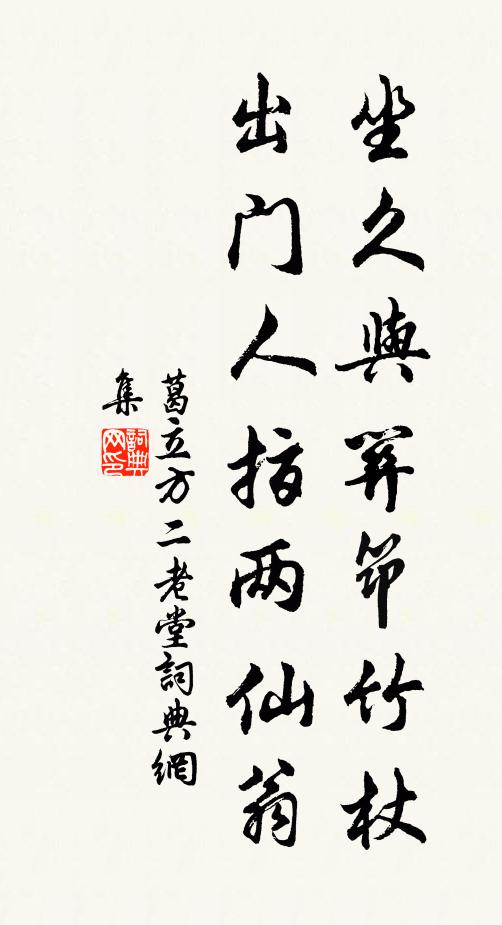 坐久與筇竹杖
出门人指两仙翁
葛立方二老堂詞典網
集
詞典
网印